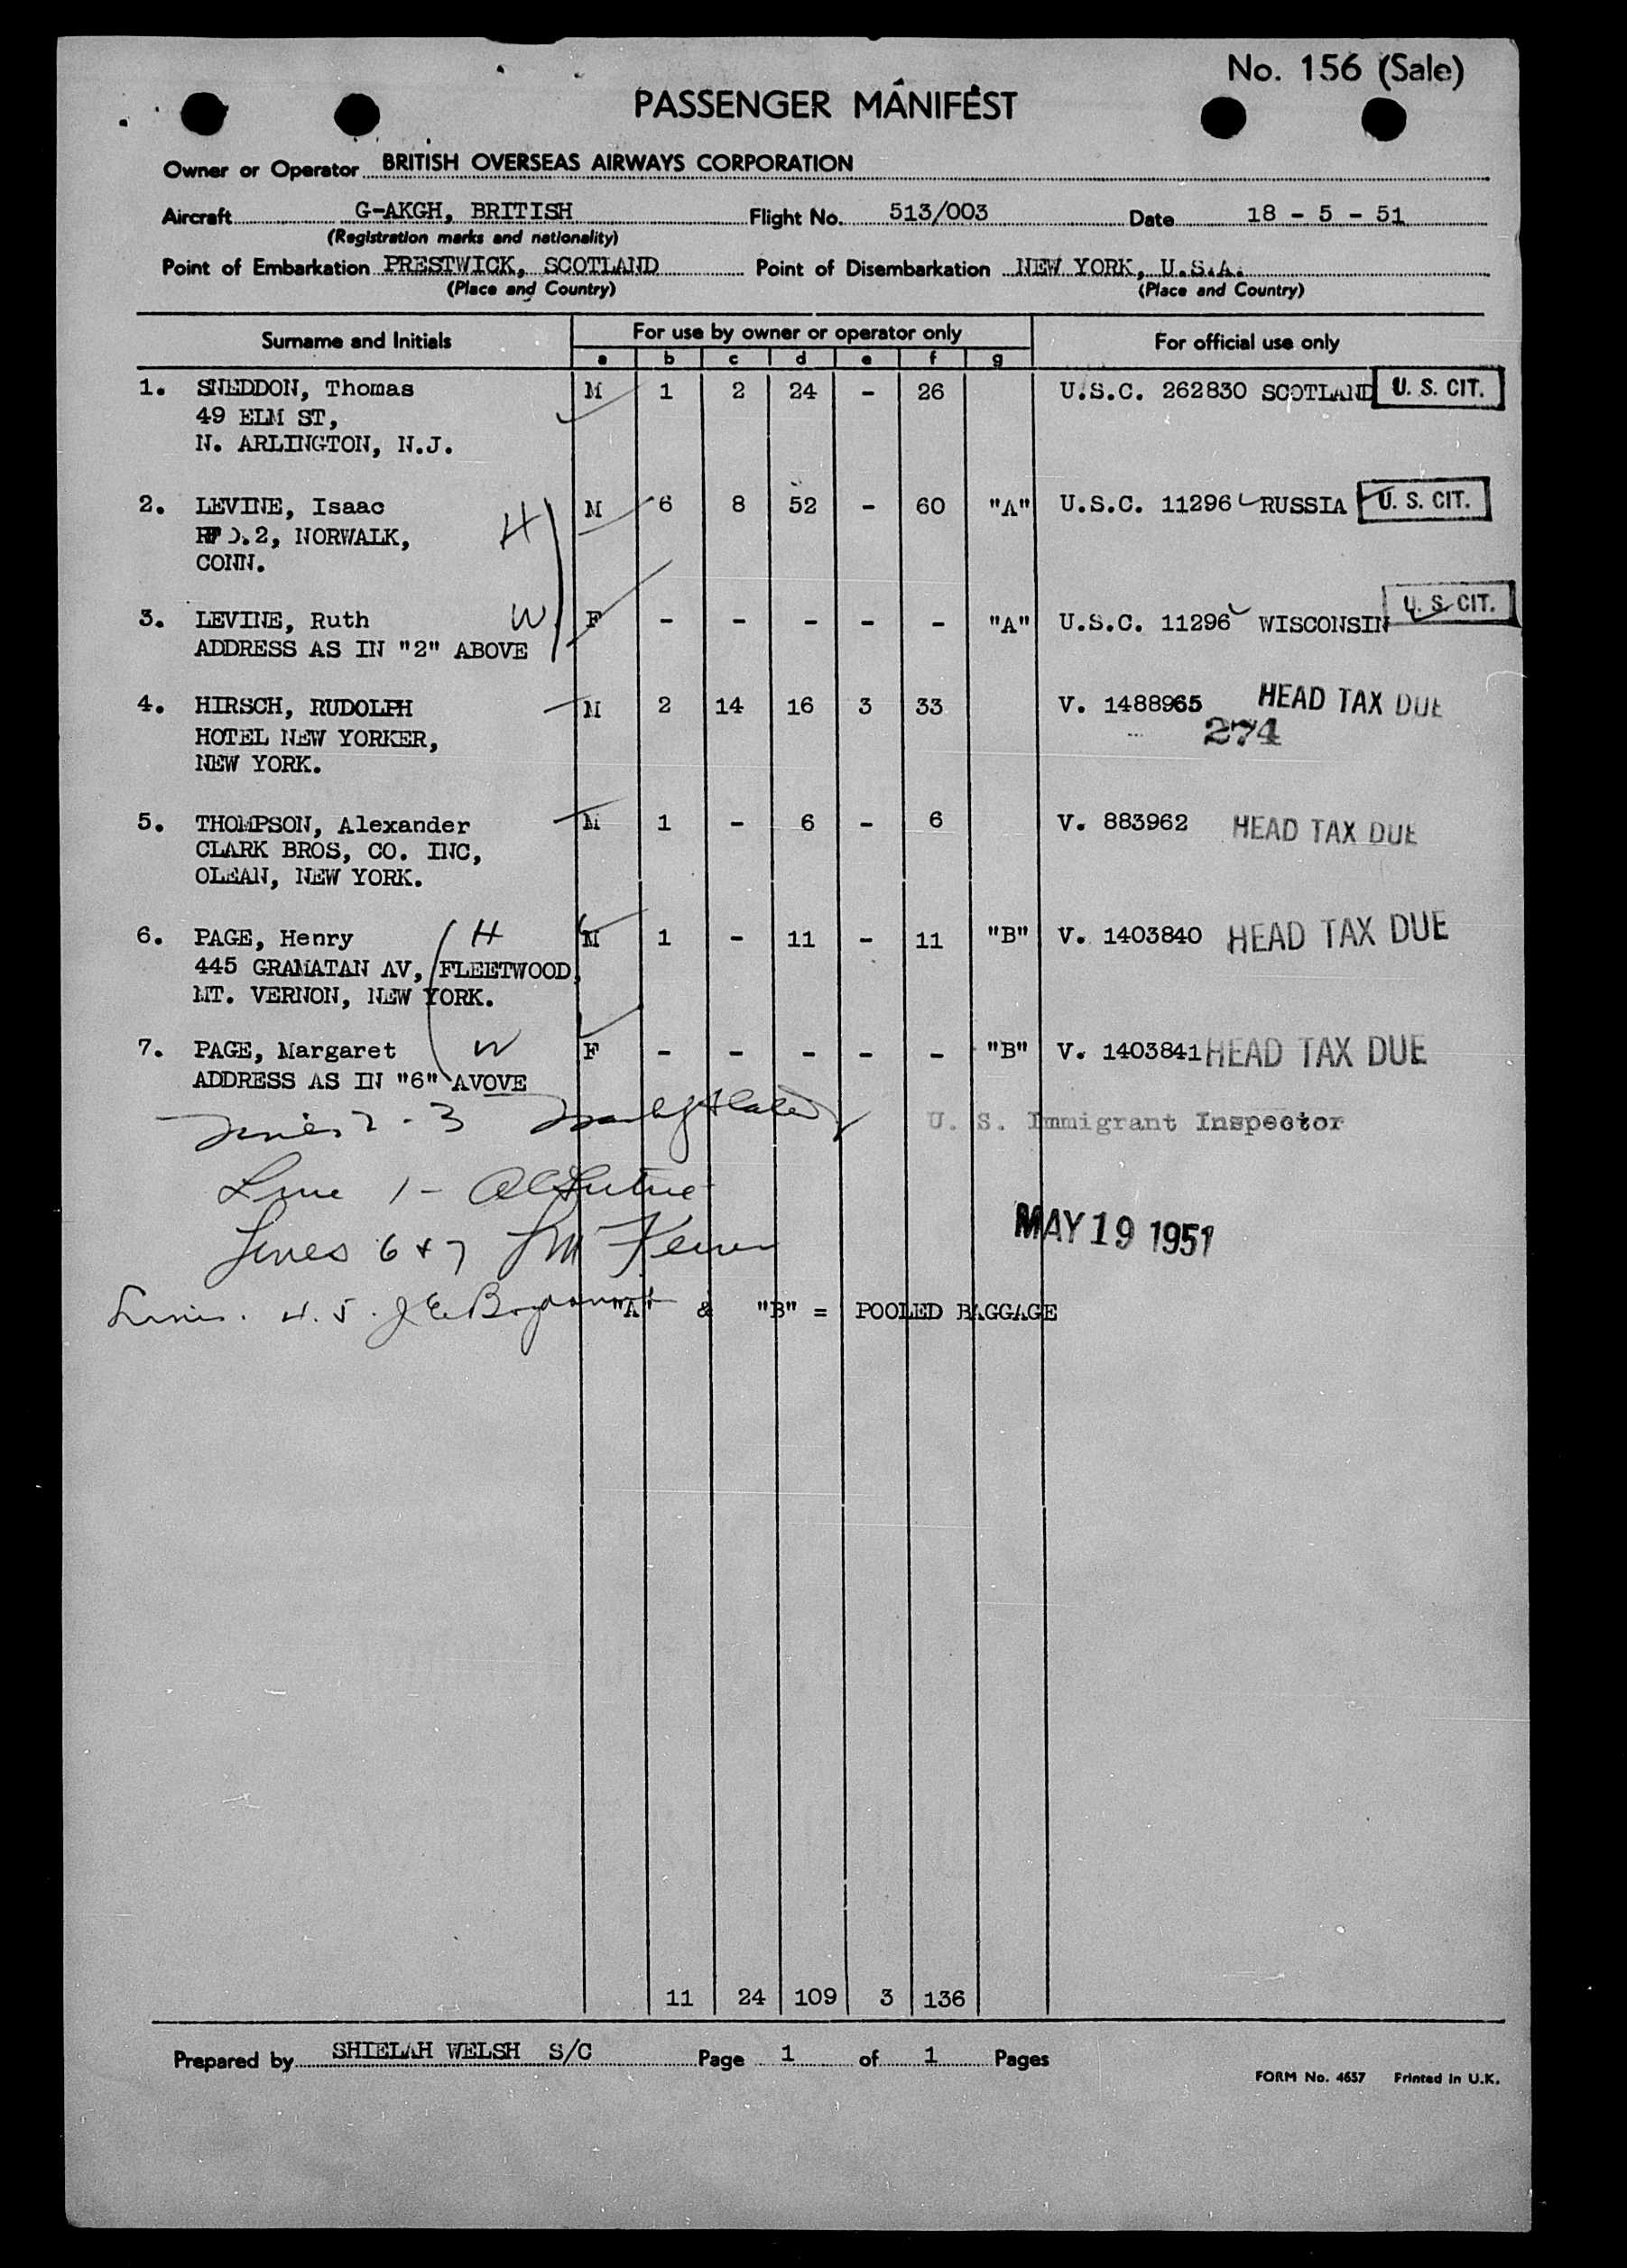 No. 156 (Sale)
PASSENGER MANIFEST
Owner or Operator BRITISH OVERSEAS AIRWAYS CORPORATION
Aircraft G-AKGH, BRITISH Flight No. 513/003 Date 18 - 5 - 51
(Registration marks and nationality)
Point of Embarkation PRESTWICK, SCOTLAND Point of Disembarkation NEW YORK, U.S.A.
(Place and Country) (Place and Country)
Surname and Initials For use by owner or operator only For official use only
a b c d e f g
1. SNEDDON, Thomas M 1 2 24 - 26 U.S.C. 262830 SCOTLAND U. S. CIT.
49 ELM ST,
N. ARLINGTON, N.J.
2. LEVINE, Isaac H M 6 8 52 - 60 "A" U.S.C. 11296 RUSSIA U. S. CIT.
RFD.2, NORWALK,
CONN.
3. LEVINE, Ruth W F - - - - - "A" U.S.C. 11296 WISCONSIN U. S. CIT.
ADDRESS AS IN "2" ABOVE
4. HIRSCH, RUDOLPH M 2 14 16 3 33 V. 1488965 HEAD TAX DUE
HOTEL NEW YORKER, 274
NEW YORK.
5. THOMPSON, Alexander M 1 - 6 - 6 V. 883962 HEAD TAX DUE
CLARK BROS, CO. INC,
OLEAN, NEW YORK.
6. PAGE, Henry H M 1 - 11 - 11 "B" V. 1403840 HEAD TAX DUE
445 GRAMATAN AV, FLEETWOOD,
MT. VERNON, NEW YORK.
7. PAGE, Margaret W F - - - - - "B" V. 1403841 HEAD TAX DUE
ADDRESS AS IN "6" AVOVE
Lines 2 - 3 U. S. Immigrant Inspector
Line 1 -
Lines 6 + 7
MAY 19 1951
Lines. 4. 5. "A" & "B" = POOLED BAGGAGE
11 24 109 3 136
Prepared by SHIELAH WELSH S/C Page 1 of 1 Pages
FORM No. 4657 Printed in U.K.